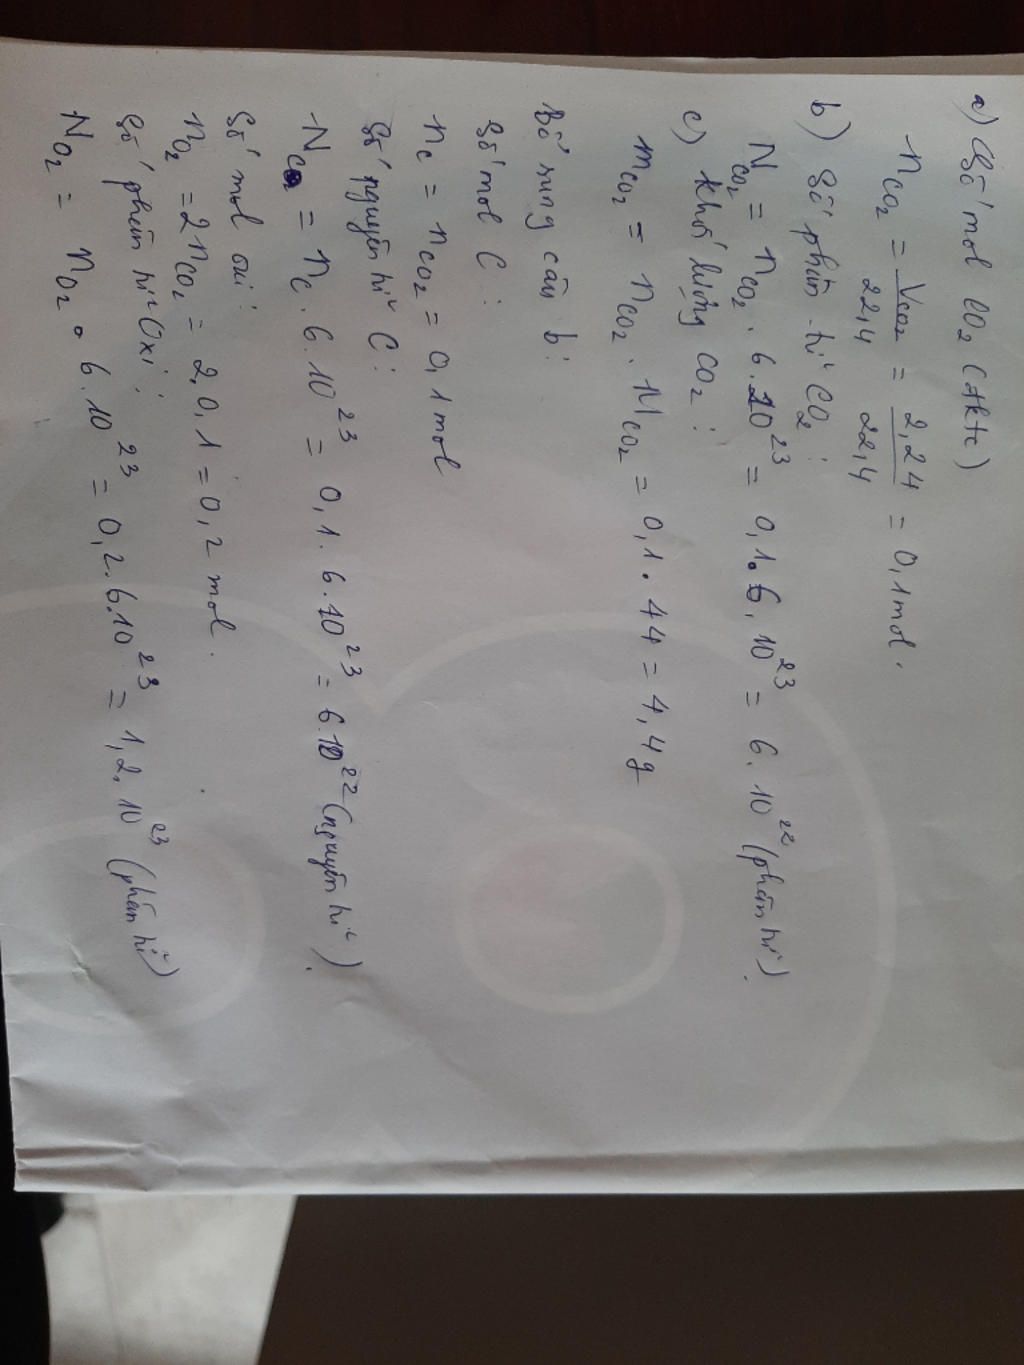 a) Số mol CO2 (đktc)
nCO2 = VCO2 / 22,4 = 2,24 / 22,4 = 0,1 mol.
b) Số phân tử CO2:
NCO2 = nCO2 . 6.10^23 = 0,1.6.10^23 = 6.10^22 (phân tử).
c) Khối lượng CO2:
mCO2 = nCO2 . MCO2 = 0,1.44 = 4,4g
Bổ sung câu b:
Số mol C:
nC = nCO2 = 0,1 mol
Số nguyên tử C:
NC = nC . 6.10^23 = 0,1.6.10^23 = 6.10^22 (nguyên tử).
Số mol oxi:
nO2 = 2nCO2 = 2.0,1 = 0,2 mol.
Số phân tử Oxi:
NO2 = nO2 . 6.10^23 = 0,2.6.10^23 = 1,2.10^23 (phân tử)